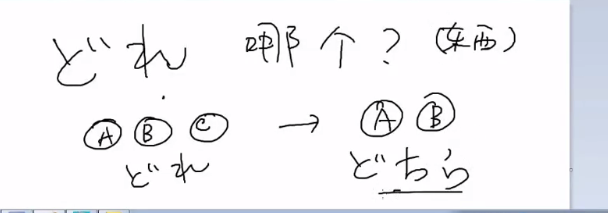 どれ 哪个? (东西)
Ⓐ Ⓑ Ⓒ → Ⓐ Ⓑ
どれ どちら